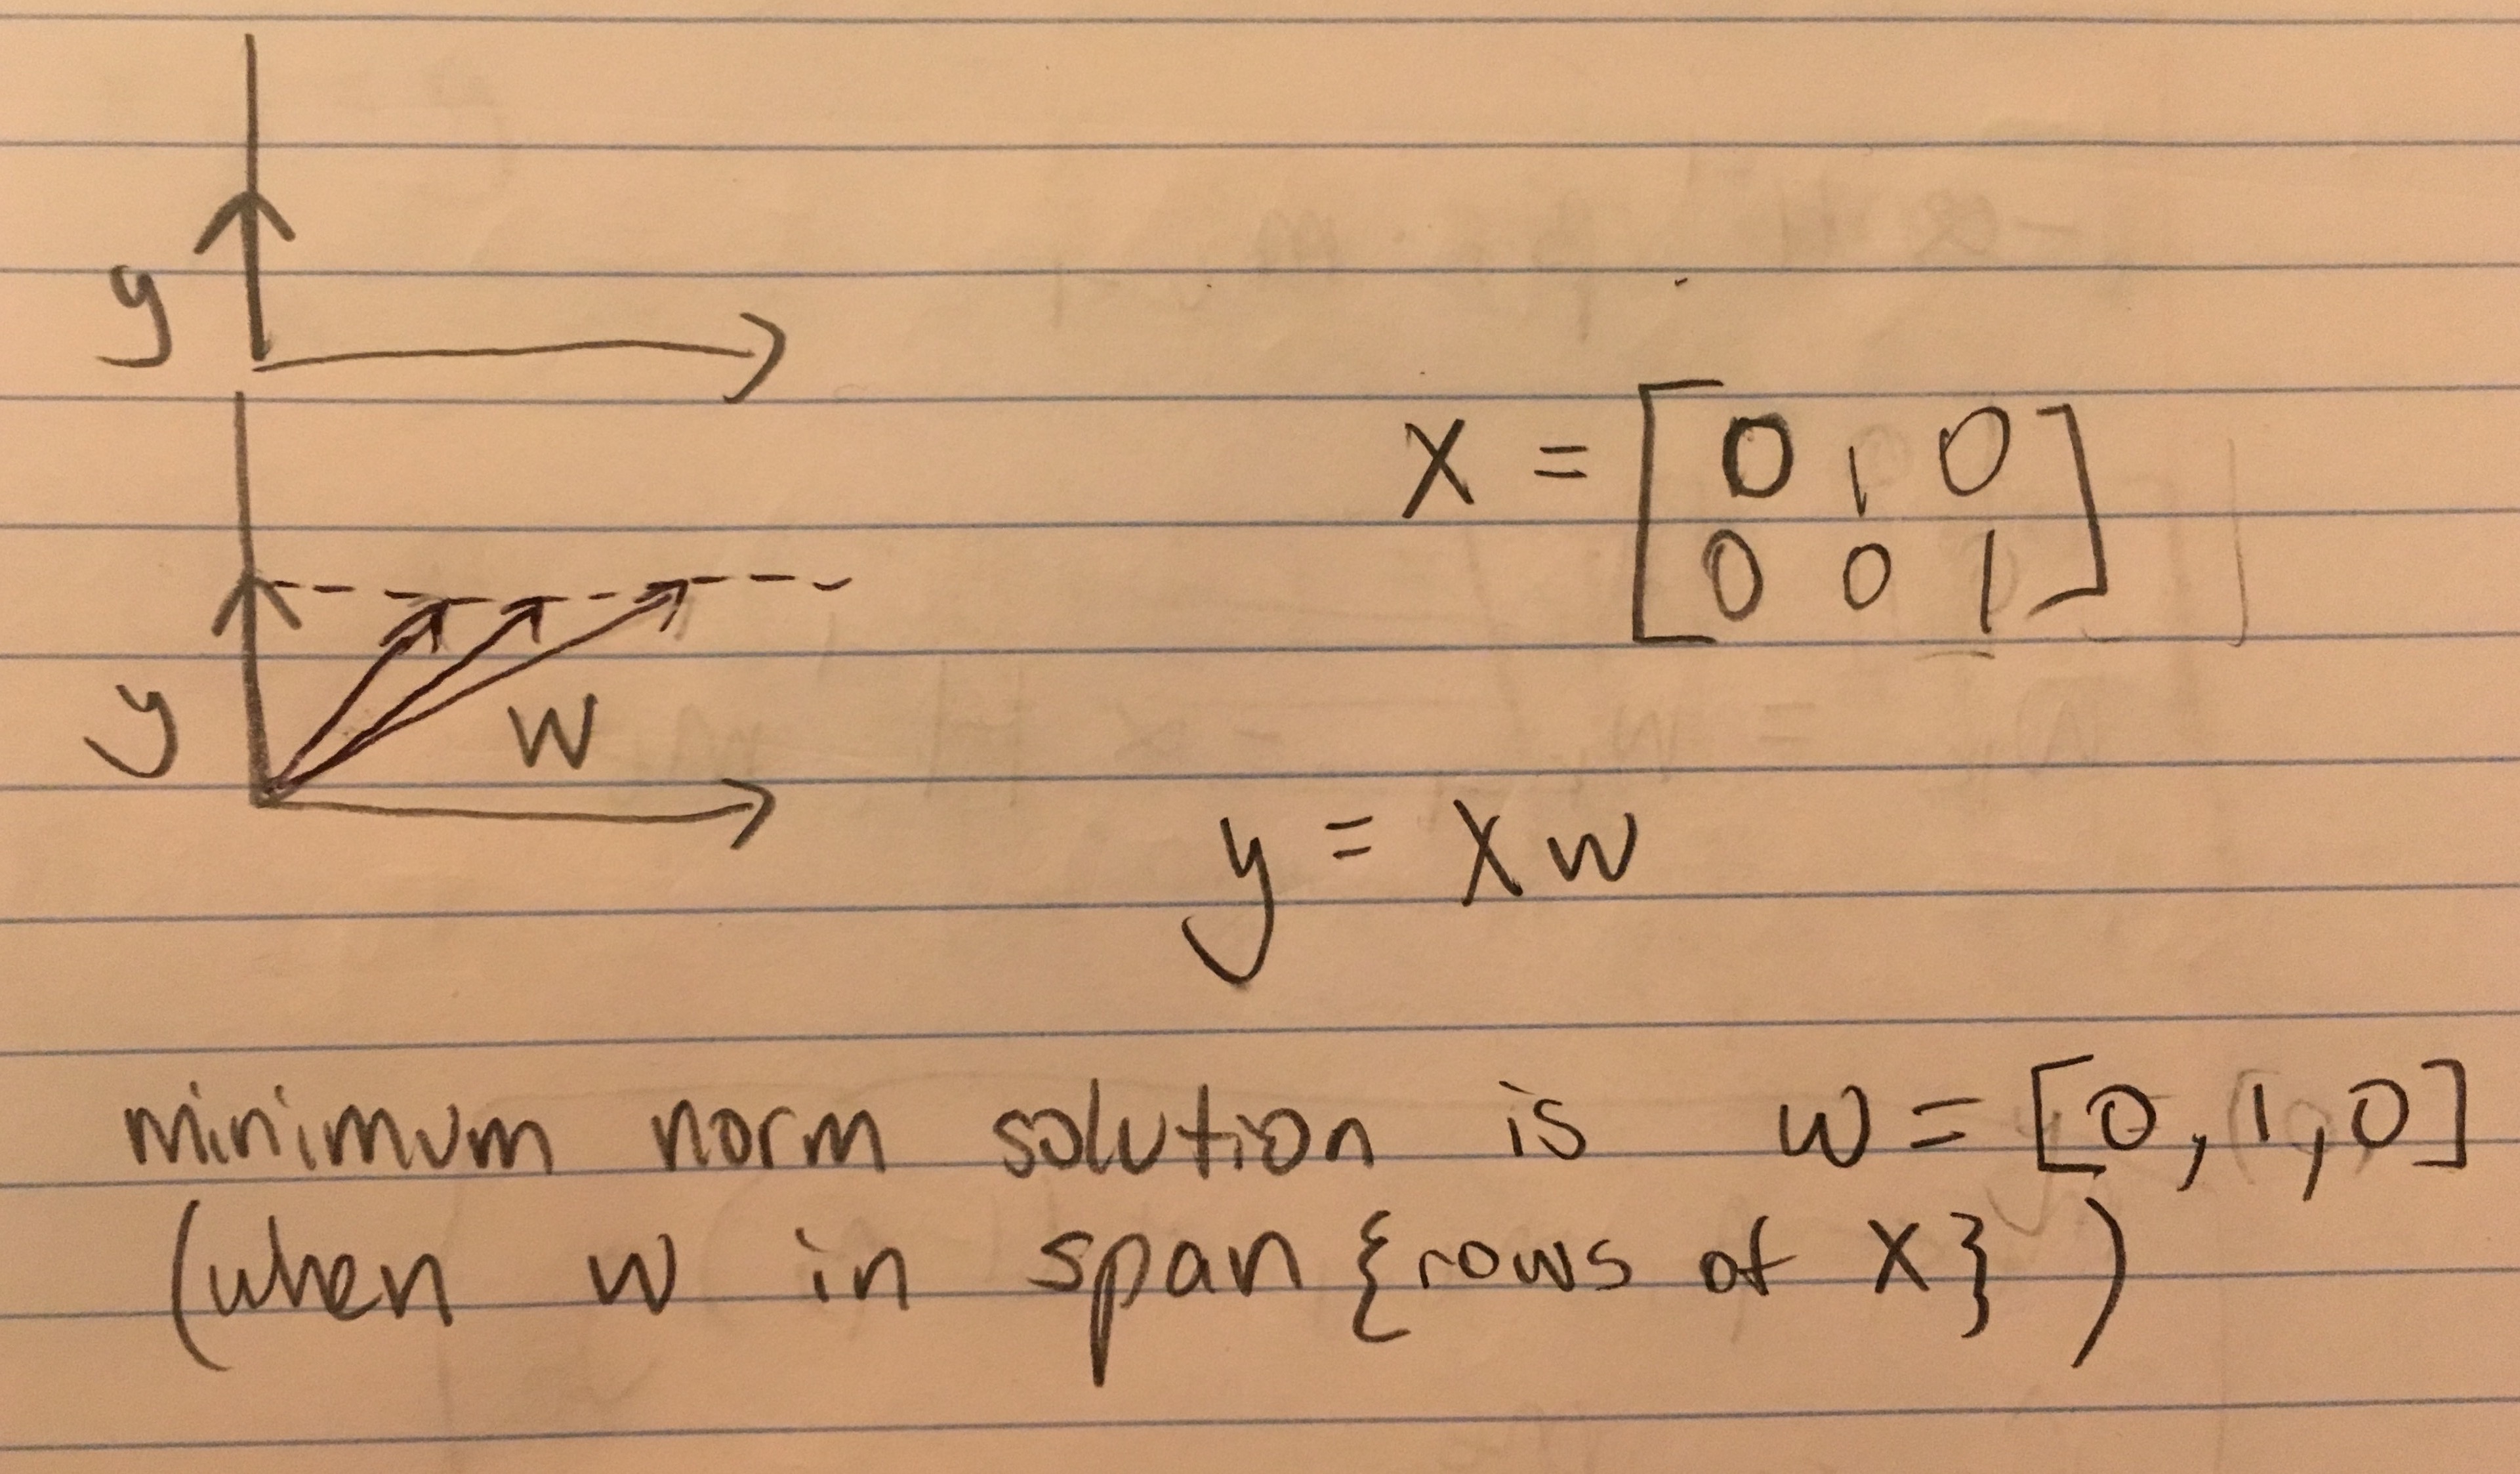 y
X = [0 1 0
0 0 1]
y
w
y = Xw
minimum norm solution is w = [0,1,0]
(when w in span {rows of X})